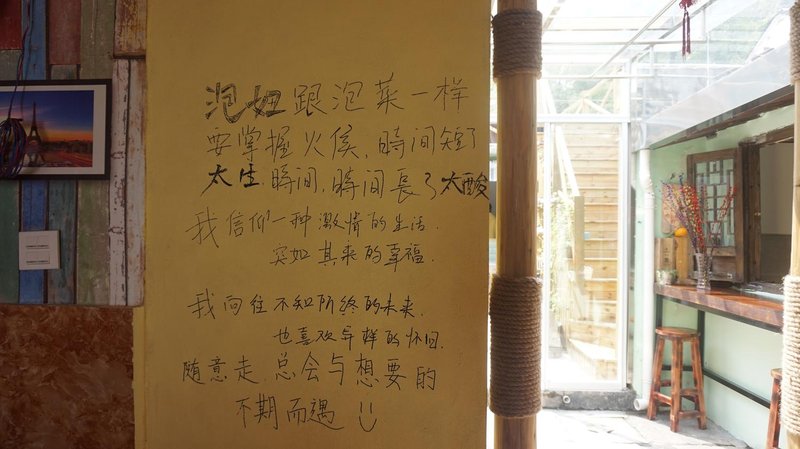 泡妞跟泡菜一样
要掌握火侯、時间短了
太生、時间、時间長了太酸
我信仰一种激情的生活.
突如其来的幸福.
我向往不知所终的未来.
也喜欢异样的怀旧.
随意走.总会与想要的
不期而遇